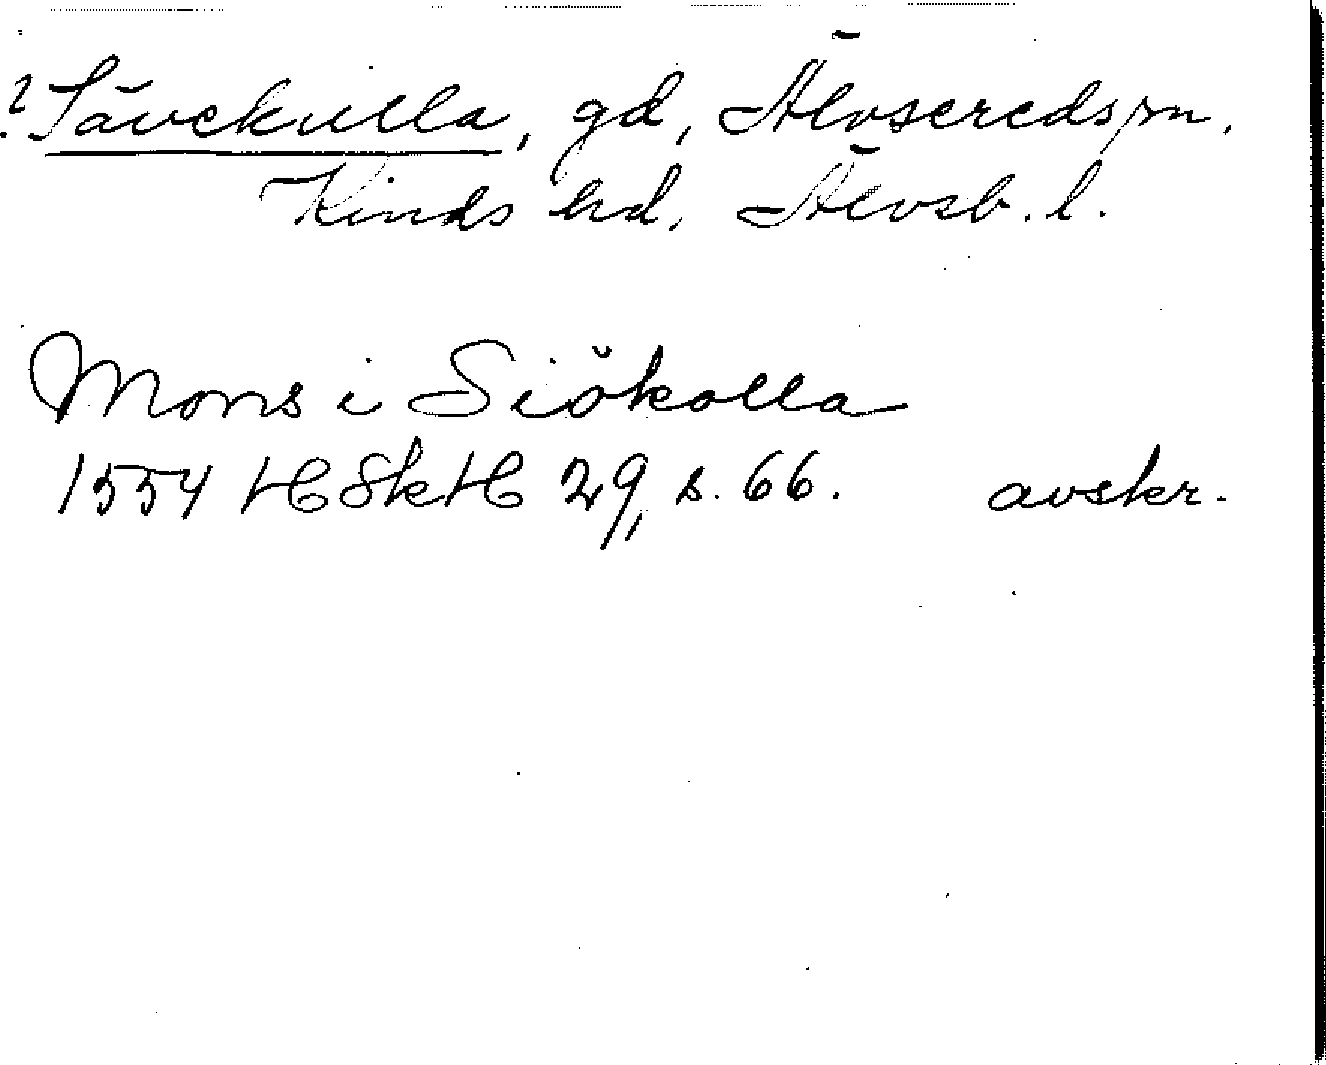 ? Sävekulla, gd, Älvsereds sn.
Kinds hd, Älvsb. l.
Mons i Siökolla
1554 HSkH 29, s. 66. avskr.